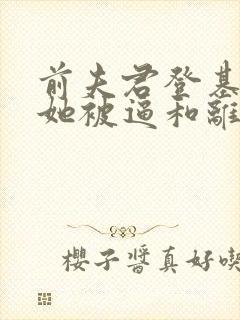 前夫君登基
她被逼和離
櫻子醬真好喫